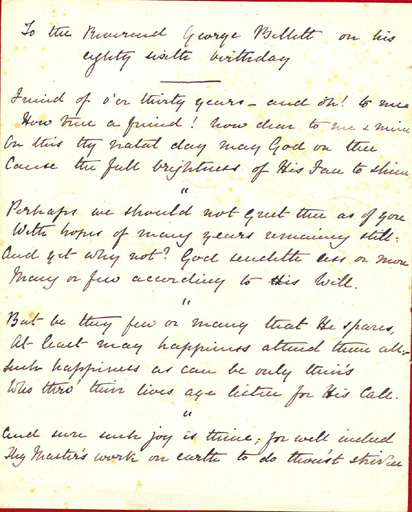 To the Reverend George Bellett on his
eighty sixth birthday
Friend of o'er thirty years - and oh! to me
How true a friend! how dear to me & mine
On this thy natal day may God on thee
Cause the full brightness of His Face to shine
"
Perhaps we should not greet thee as of yore
With hopes of many years remaining still:
And yet why not? God sendeth less or more
Many or few according to His Will.
"
But be they few or many that He spares,
At least may happiness attend them all:-
Such happiness as can be only their's
Who thro' their lives age listen for His Call.
"
And sure such joy is thine; for well indeed
Thy Master's work on earth to do thou'st striven